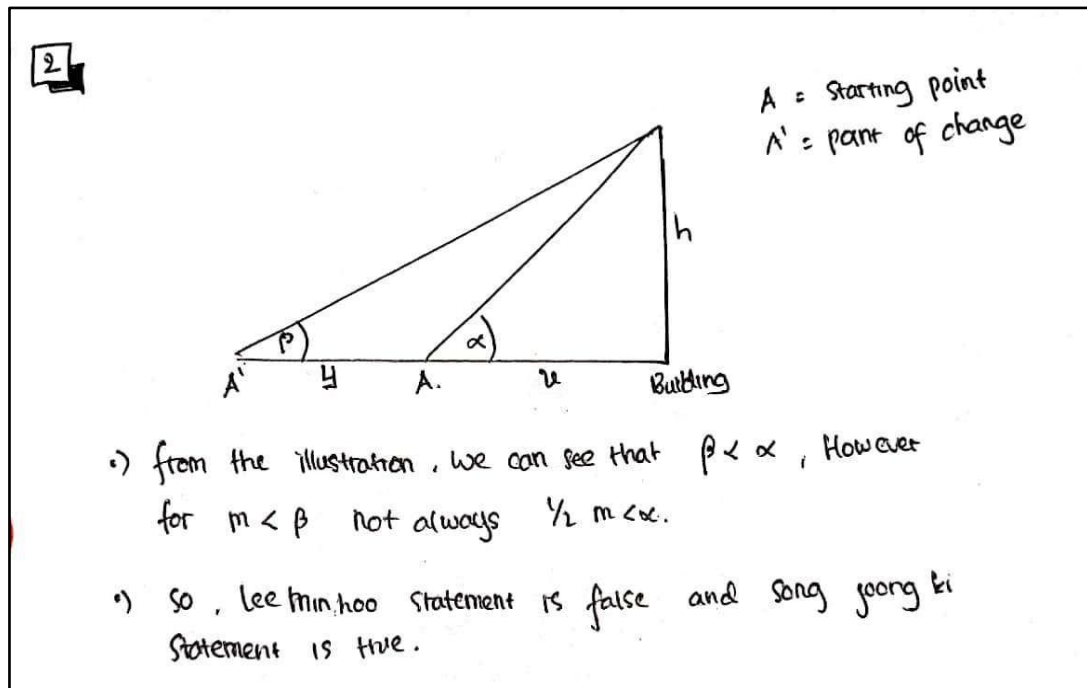 2
A = Starting point
A' = point of change
h
β
α
A'
y
A.
x
Building
•) from the illustration, we can see that β < α, However
for m < β not always 1/2 m < α.
•) so, lee min hoo statement is false and song joong ki
Statement is true.